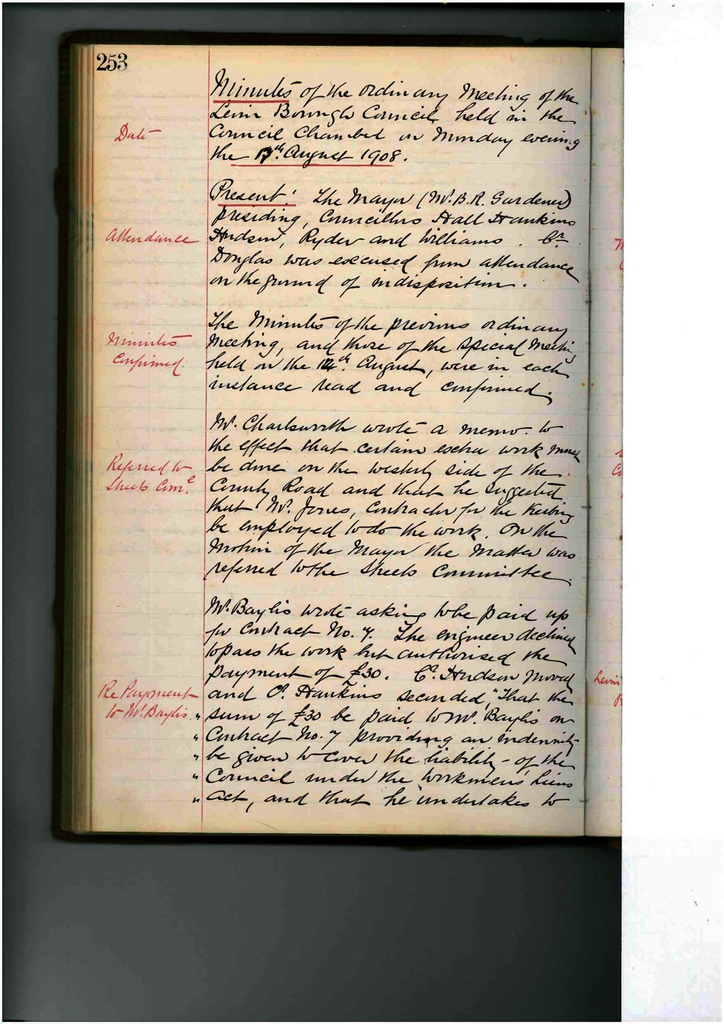 253
Minutes of the ordinary Meeting of the
Levin Borough Council, held in the
Date
Council Chamber on Monday evening
the 17th August 1908.
Present: The Mayor (Mr. B.R. Gardener)
presiding, Councillors Hall Hankins
Attendance
Hudson, Ryder and Williams. Cr.
Douglas was excused from attendance
on the ground of indisposition.
The Minutes of the previous ordinary
Minutes
Meeting, and those of the Special Meeting
Confirmed.
held on the 12th. August, were in each
instance read and confirmed.
Mr. Charlsworth wrote a memo. to
the effect that certain extra work must
Referred to
be done on the westerly side of the
Streets Comee.
County Road and that he suggested
that Mr. Jones, Contractor for the Kerbing
be employed to do the work. On the
Motion of the Mayor the Matter was
referred to the Streets Committee.
Mr. Baylis wrote asking to be paid up
for Contract No. 7. The engineer declined
to pass the work but authorised the
payment of £30. Cr. Hudson Moved
Re Payment
and Cr. Hankins seconded, "That the
to Mr. Baylis.
" sum of £30 be paid to Mr. Baylis on
" Contract No. 7 providing an indemnity
" be given to cover the liability of the
" Council under the Workmen's Liens
" Act, and that he undertakes to
Levin